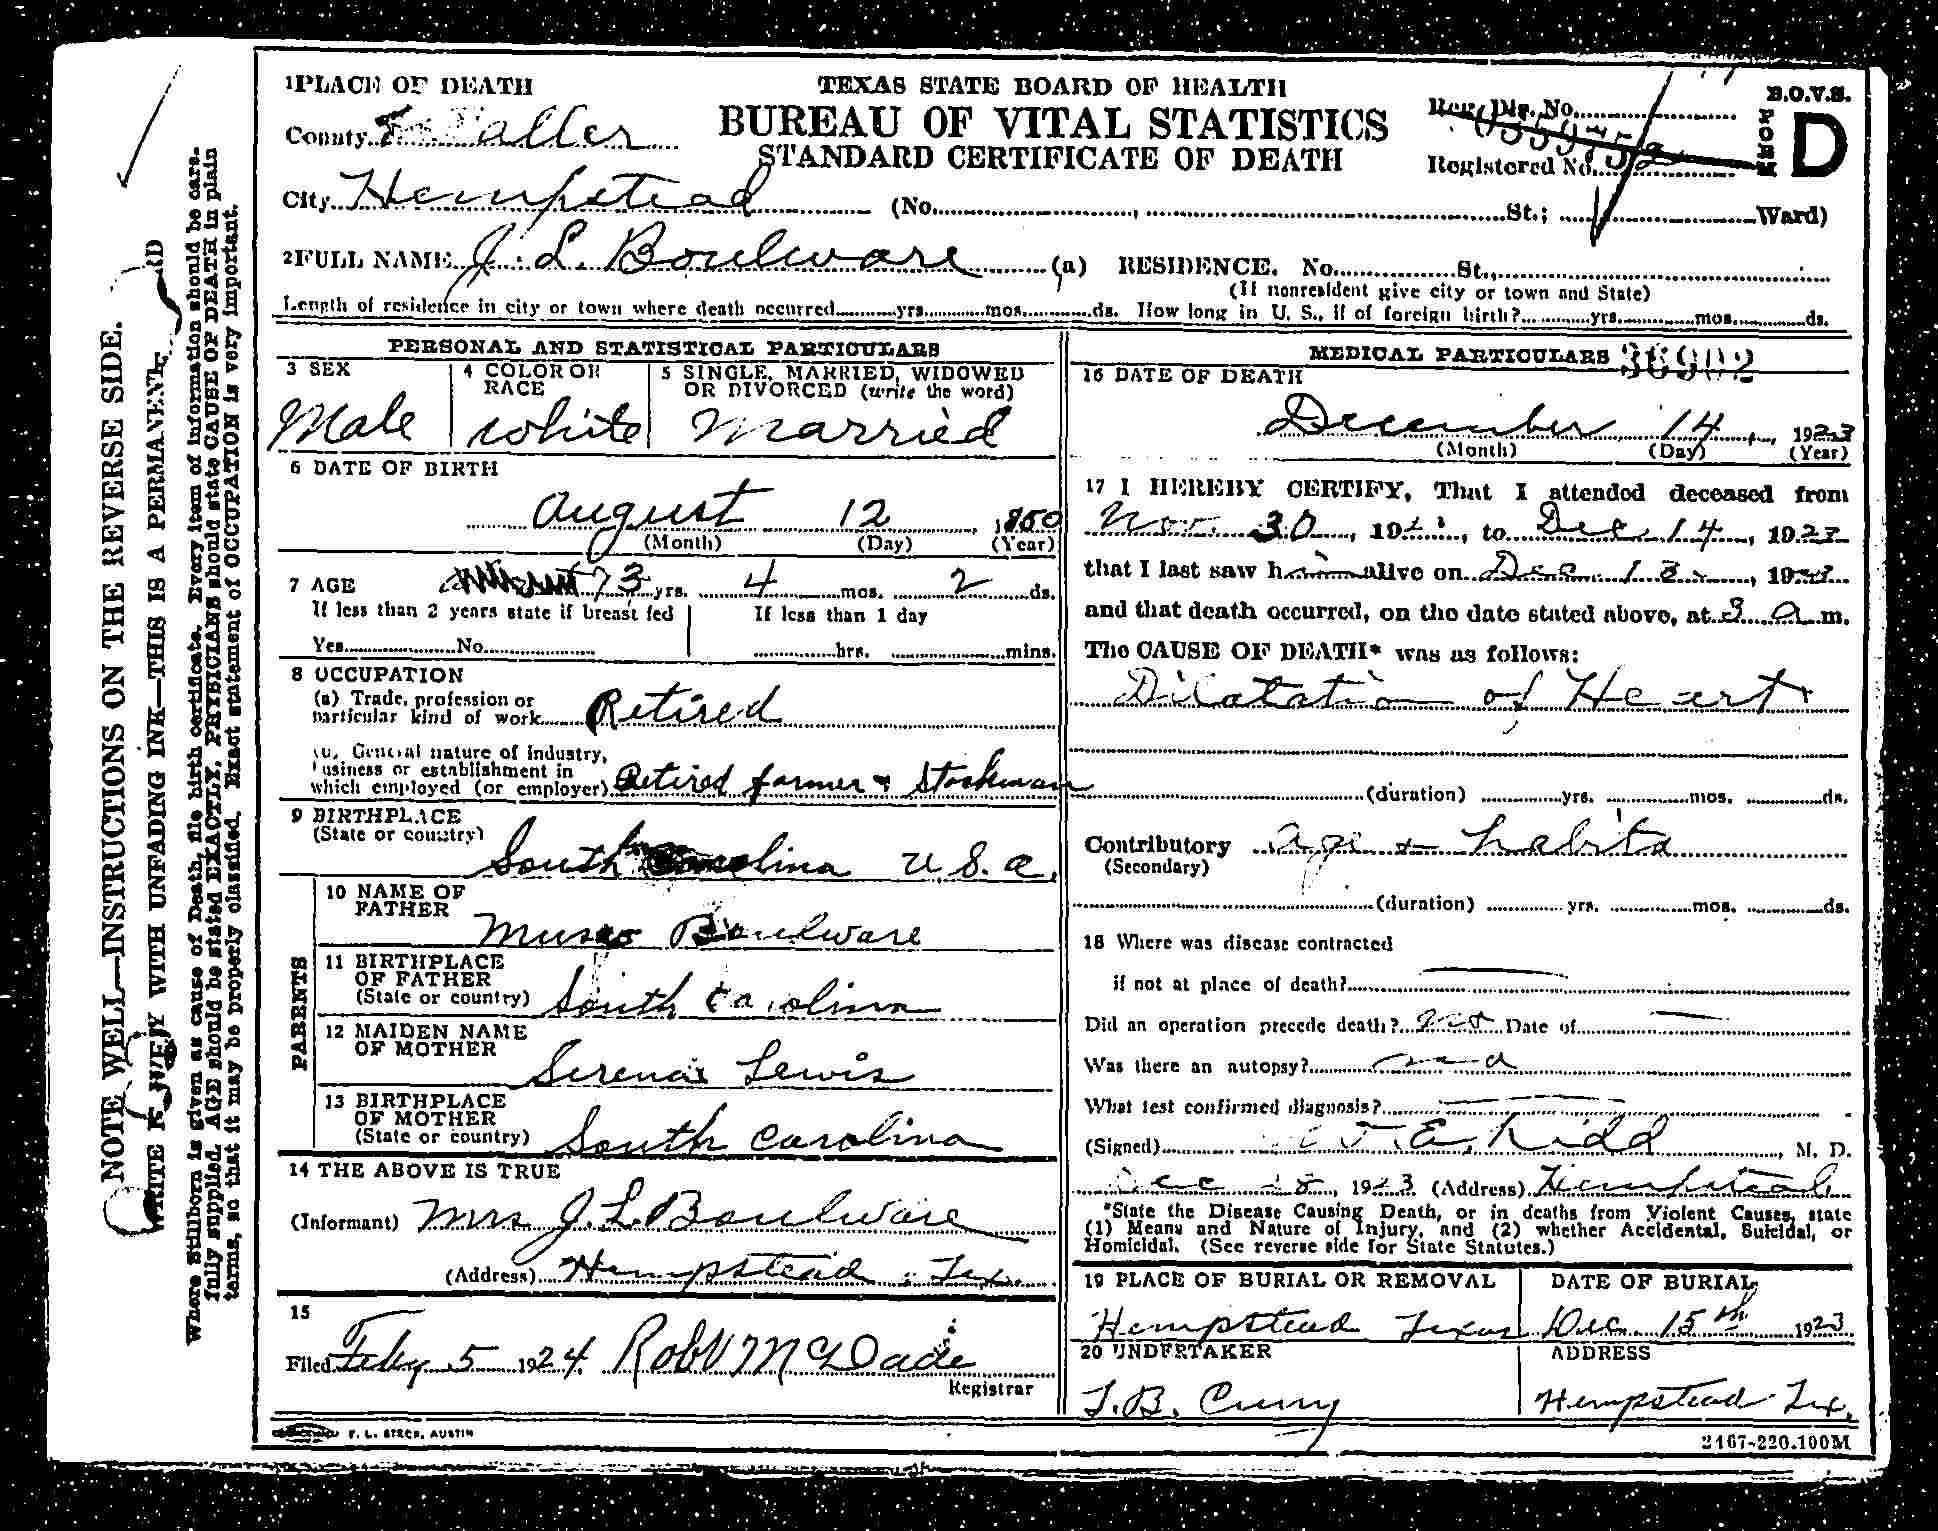 1 PLACE OF DEATH
TEXAS STATE BOARD OF HEALTH
B.O.V.S.
FORM D
County Waller
BUREAU OF VITAL STATISTICS
Reg. Dis. No.
STANDARD CERTIFICATE OF DEATH
Registered No.
City Hempstead (No. , St.; Ward)
2 FULL NAME J. L. Boulware (a) RESIDENCE. No. St.,
(If nonresident give city or town and State)
Length of residence in city or town where death occurred yrs. mos. ds. How long in U. S., if of foreign birth? yrs. mos. ds.
PERSONAL AND STATISTICAL PARTICULARS
3 SEX
Male
4 COLOR OR RACE
white
5 SINGLE, MARRIED, WIDOWED
OR DIVORCED (write the word)
Married
6 DATE OF BIRTH
August 12, 1850
(Month) (Day) (Year)
7 AGE 73 yrs. 4 mos. 2 ds.
If less than 2 years state if breast fed
Yes No
If less than 1 day
hrs. mins.
8 OCCUPATION
(a) Trade, profession or
particular kind of work Retired
General nature of industry,
business or establishment in
which employed (or employer) Retired farmer & Stockman
9 BIRTHPLACE
(State or country)
South Carolina U.S.A.
PARENTS
10 NAME OF
FATHER
Boulware
11 BIRTHPLACE
OF FATHER
(State or country) South Carolina
12 MAIDEN NAME
OF MOTHER
Serena Lewis
13 BIRTHPLACE
OF MOTHER
(State or country) South Carolina
14 THE ABOVE IS TRUE
(Informant) Mrs J. L. Boulware
(Address) Hempstead, Tex.
15
Filed Feby 5 1924 Robt McDade
Registrar
F. L. STECK, AUSTIN
MEDICAL PARTICULARS 36902
16 DATE OF DEATH
December 14, 1923
(Month) (Day) (Year)
17 I HEREBY CERTIFY, That I attended deceased from
Nov. 30, 192 , to Dec 14, 1923
that I last saw him alive on Dec , 1923
and that death occurred, on the date stated above, at 3 a m.
The CAUSE OF DEATH* was as follows:
Dilatation of Heart
(duration) yrs. mos. ds.
Contributory age + habits
(Secondary)
(duration) yrs. mos. ds.
18 Where was disease contracted
if not at place of death?
Did an operation precede death? no Date of
Was there an autopsy? no
What test confirmed diagnosis?
(Signed) E. Kidd, M. D.
Dec , 1923 (Address) Hempstead
*State the Disease Causing Death, or in deaths from Violent Causes, state
(1) Means and Nature of Injury, and (2) whether Accidental, Suicidal, or
Homicidal. (See reverse side for State Statutes.)
19 PLACE OF BURIAL OR REMOVAL
Hempstead Texas
DATE OF BURIAL
Dec. 15th 1923
20 UNDERTAKER
ADDRESS
Hempstead Tex.
2167-220.100M
NOTE WELL—INSTRUCTIONS ON THE REVERSE SIDE.
WITH UNFADING INK—THIS IS A PERMANENT
Where Stillborn is given as cause of Death, file birth certificate. Every item of information should be care-
fully supplied. AGE should be stated EXACTLY. PHYSICIANS should state CAUSE OF DEATH in plain
terms, so that it may be properly classified. Exact statement of OCCUPATION is very important.